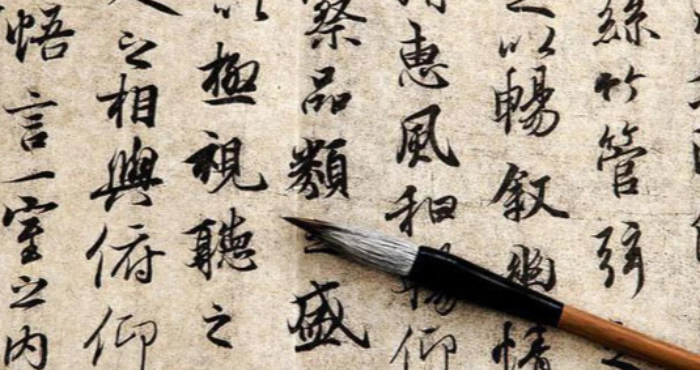 絲竹管弦之
以暢叙幽情
惠風和暢仰
察品類之盛
以極視聽之
之相與俯仰
悟言一室之內